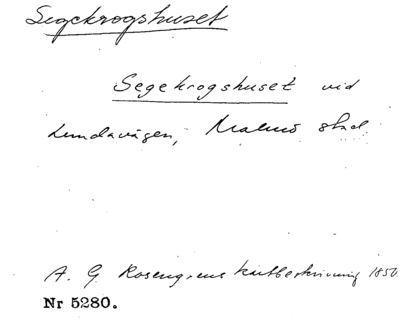 Segekrogshuset
Segekrogshuset vid
Lundavägen, Malmö stad
A. G. Rosengrens kartbeskrivning 1850.
Nr 5280.